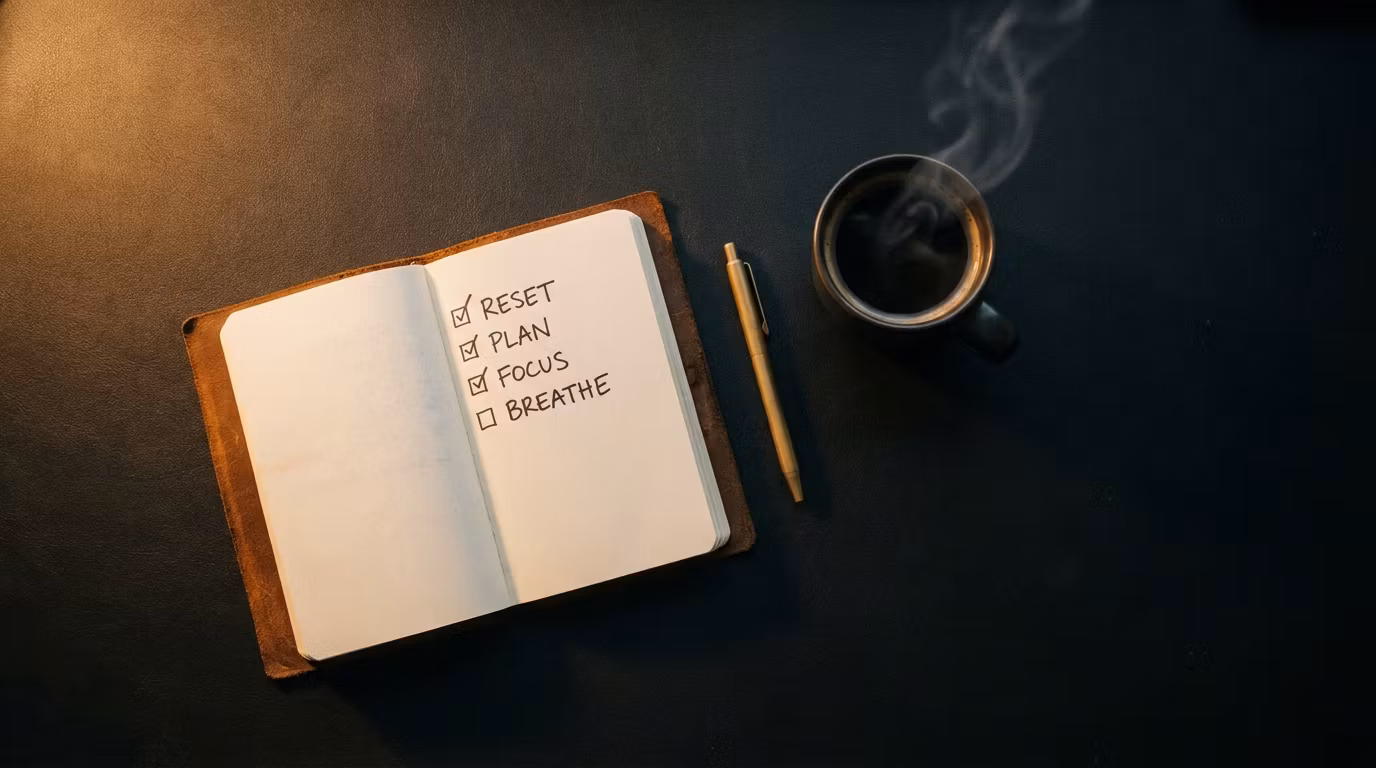 ☑ RESET
☑ PLAN
☑ FOCUS
☐ BREATHE